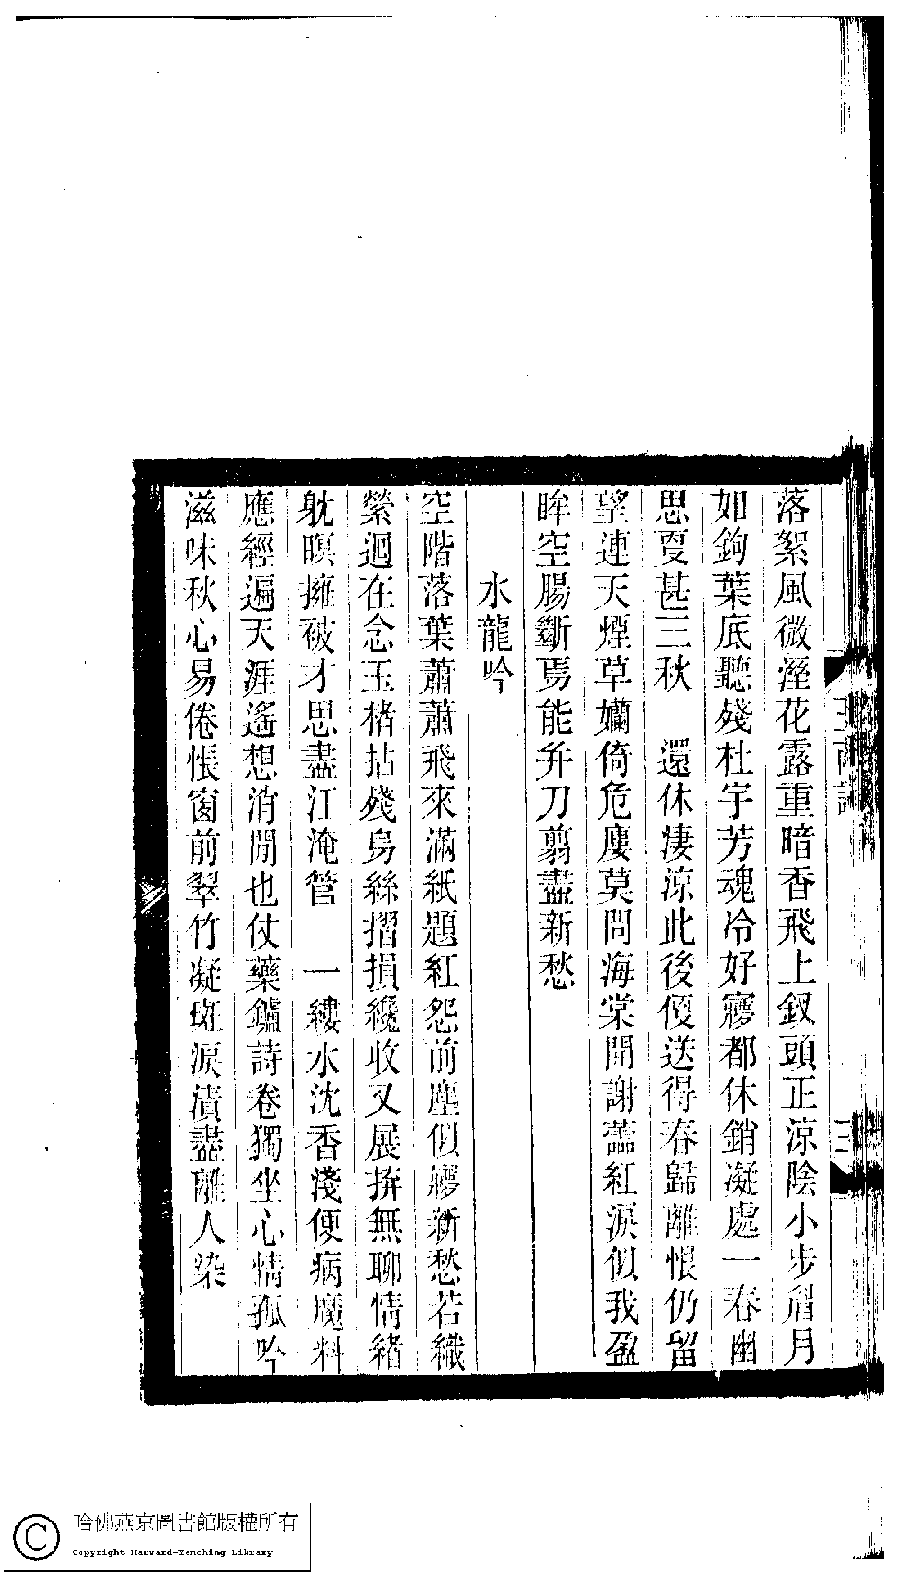 落絮風微溼花露重暗香飛上釵頭正涼陰小步眉月
如鉤葉底聽殘杜宇芳魂冷好寱都休銷凝處一春幽
思夏甚三秋　還休淒涼此後便送得春歸離恨仍留
望連天煙草嬾倚危廔莫問海棠開謝蘸紅淚似我盈
眸空腸斷焉能幷刀翦盡新愁
水龍吟
空階落葉蕭蕭飛來滿紙題紅怨前塵似寱新愁若織
縈迴在念玉楮拈殘烏絲摺損纔收又展拚無聊情緒
躭暝擁被才思盡江淹管　一縷水沈香淺便病魔料
應經遍天涯遙想消閒也仗藥鑪詩卷獨坐心情孤吟
滋味秋心易倦悵窗前翠竹凝斑淚漬盡離人染
三
哈佛燕京圖書館版權所有
Copyright Harvard-Yenching Library